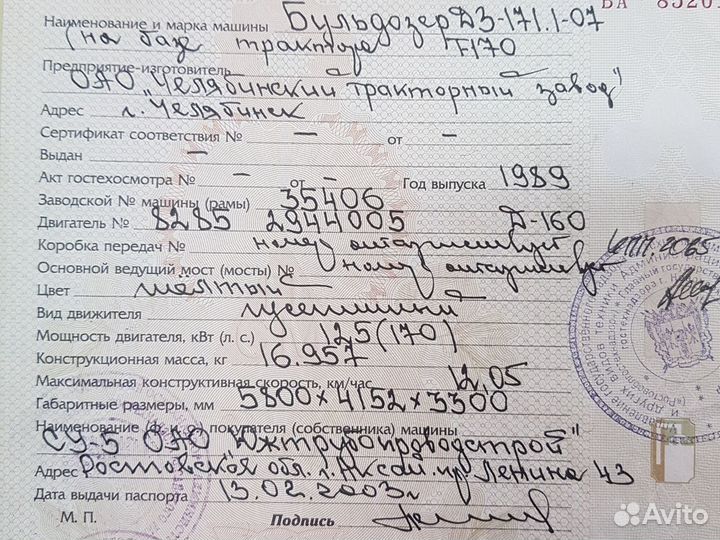 ВА 8520
Наименование и марка машины Бульдозер ДЗ-171.1-07
(на базе трактора Т170
Предприятие-изготовитель
ОАО „Челябинский тракторный завод"
Адрес г. Челябинск
Сертификат соответствия № – от –
Выдан –
Акт гостехосмотра № – от – Год выпуска 1989
Заводской № машины (рамы) 35406
Двигатель № 8285 2944005 Д-160
Коробка передач № номер отсутствует
Основной ведущий мост (мосты) № номер отсутствует
Цвет желтый
Вид движителя гусеничный
Мощность двигателя, кВт (л. с.) 125 (170)
Конструкционная масса, кг 16.957
Максимальная конструктивная скорость, км/час 12,05
Габаритные размеры, мм 5800х4152х3300
Наименование (ф. и. о.) покупателя (собственника) машины
СУ-5 ОАО "Южтрубопроводстрой"
Адрес Ростовская обл. г. Аксай. пр. Ленина 43
Дата выдачи паспорта 13.02.2003г
М. П. Подпись
Avito